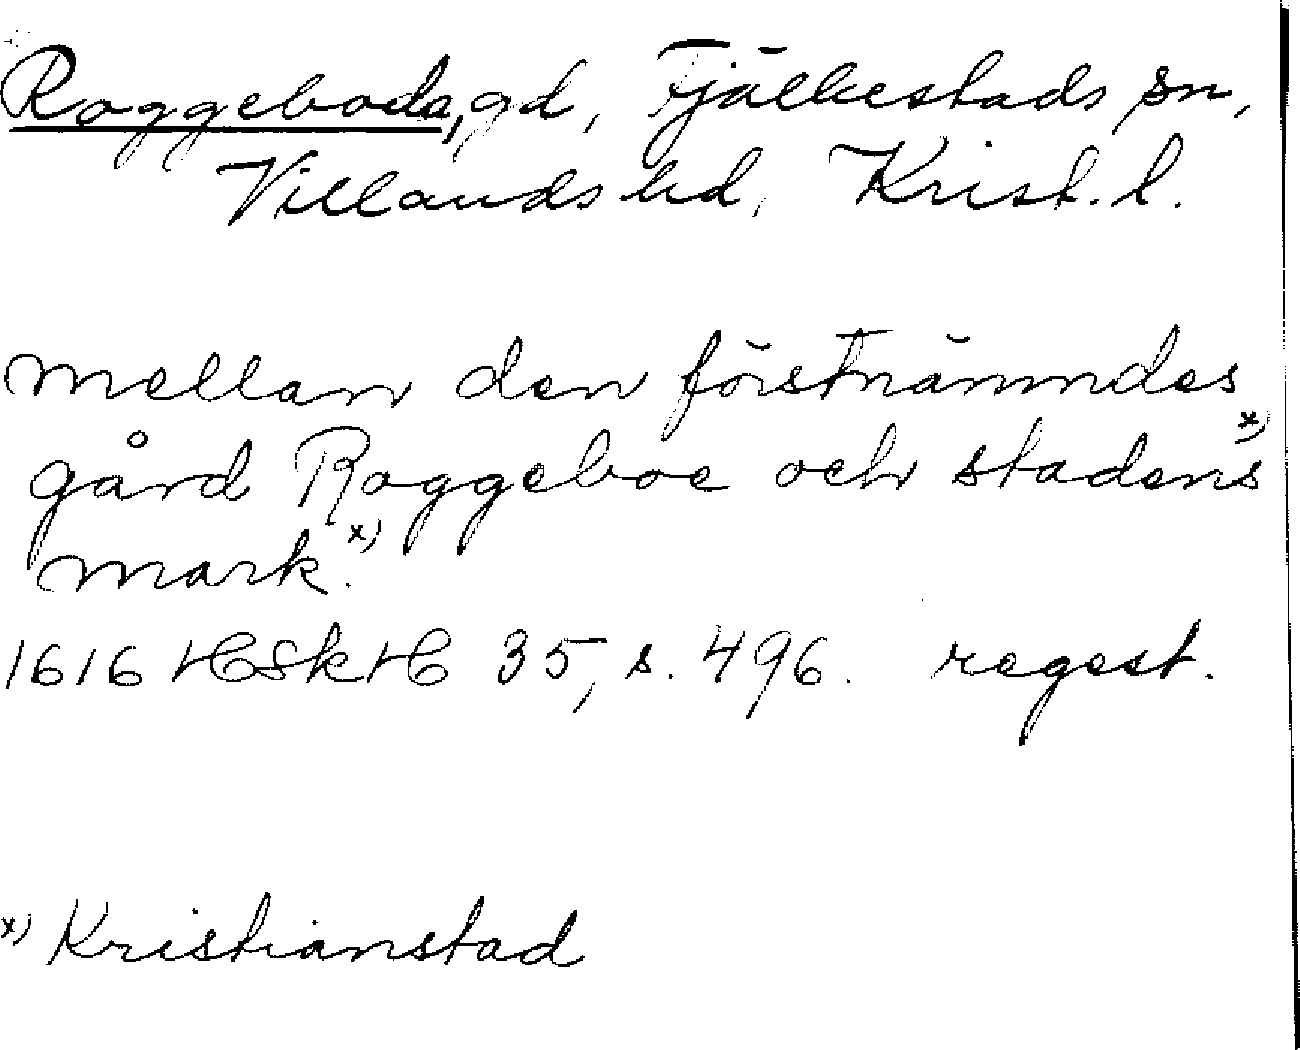 Roggeboda, gd, Fjälkestads sn,
Villands hd, Krist. l.
mellan den förstnämndes
gård Roggeboe och stadens x)
mark. x)
1616 HSkH 35, s. 496. regest.
x) Kristianstad